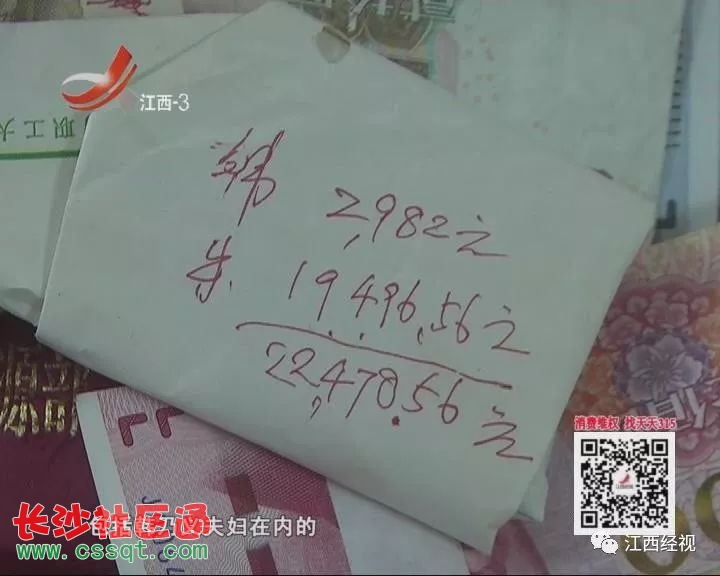 江西-3
职工大
2,982元
朱 19,496.56元
22,478.56元
消费维权 找天天315
夫妇在内的
长沙社区通
www.cssqt.com
江西经视